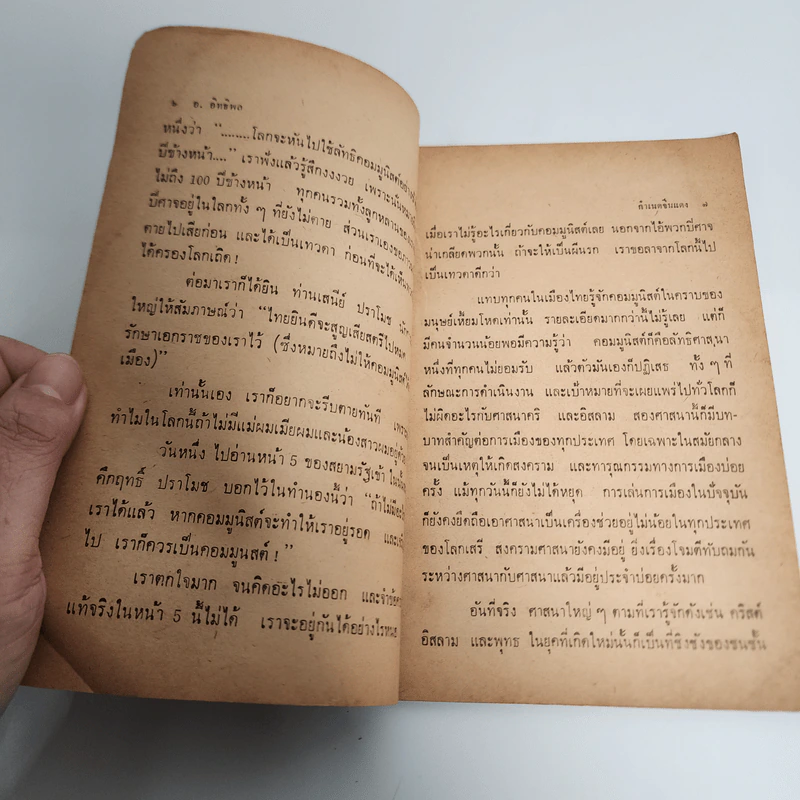 ๖ อ. อิทธิพล
หนึ่งว่า “........โลกจะหันไปใช้ลัทธิคอมมูนิสต์
ปีข้างหน้า....” เราฟังแล้วรู้สึกงงงวย เพราะนั่น
ไม่ถึง 100 ปีข้างหน้า ทุกคนรวมทั้งลูกหลานของ
ปีศาจอยู่ในโลกทั้ง ๆ ที่ยังไม่ตาย ส่วนเราเอง
ตายไปเสียก่อน และได้เป็นเทวดา ก่อนที่จะได้เห็น
ได้ครองโลกเถิด!
ต่อมาเราก็ได้ยิน ท่านเสนีย์ ปราโมช
ใหญ่ให้สัมภาษณ์ว่า “ไทยยินดีจะสูญเสียสตรีไป
รักษาเอกราชของเราไว้ (ซึ่งหมายถึงไม่ให้คอมมูนิสต์
เมือง)”
เท่านั้นเอง เราก็อยากจะรีบตายทันที เพราะ
ทำไมในโลกนี้ถ้าไม่มีแม่ผมเมียผมและน้องสาวผมอยู่ด้วย
วันหนึ่ง ไปอ่านหน้า 5 ของสยามรัฐเข้า
คึกฤทธิ์ ปราโมช บอกไว้ในทำนองนี้ว่า “ถ้าไม่มี
เราได้แล้ว หากคอมมูนิสต์จะทำให้เราอยู่รอด และ
ไป เราก็ควรเป็นคอมมูนสต์!”
เราตกใจมาก จนคิดอะไรไม่ออก และ
แท้จริงในหน้า 5 นี้ไม่ได้ เราจะอยู่กันได้อย่างไร
กำเนดจีนแดง ๗
เมื่อเราไม่รู้อะไรเกี่ยวกับคอมมูนิสต์เลย นอกจากไอ้พวกปีศาจ
น่าเกลียดพวกนั้น ถ้าจะให้เป็นผีนรก เราขอลาจากโลกนี้ไป
เป็นเทวดาดีกว่า
แทบทุกคนในเมืองไทยรู้จักคอมมูนิสต์ในคราบของ
มนุษย์เหี้ยมโหดเท่านั้น รายละเอียดมากกว่านี้ไม่รู้เลย แต่ก็
มีคนจำนวนน้อยพอมีความรู้ว่า คอมมูนิสต์ก็คือลัทธิศาสนา
หนึ่งที่ทุกคนไม่ยอมรับ แล้วตัวมันเองก็ปฏิเสธ ทั้ง ๆ ที่
ลักษณะการดำเนินงาน และเป้าหมายที่จะเผยแพร่ไปทั่วโลกก็
ไม่ผิดอะไรกับศาสนาคริ และอิสลาม สองศาสนานี้ก็มีบท-
บาทสำคัญต่อการเมืองของทุกประเทศ โดยเฉพาะในสมัยกลาง
จนเป็นเหตุให้เกิดสงคราม และทารุณกรรมทางการเมืองบ่อย
ครั้ง แม้ทุกวันนี้ก็ยังไม่ได้หยุด การเล่นการเมืองในปัจจุบัน
ก็ยังคงยึดถือเอาศาสนาเป็นเครื่องช่วยอยู่ไม่น้อยในทุกประเทศ
ของโลกเสรี สงครามศาสนายังคงมีอยู่ ยิ่งเรื่องโจมตีทับถมกัน
ระหว่างศาสนากับศาสนาแล้วมีอยู่ประจำบ่อยครั้งมาก
อันที่จริง ศาสนาใหญ่ ๆ ตามที่เรารู้จักดังเช่น คริสต์
อิสลาม และพุทธ ในยุคที่เกิดใหม่นั้นก็เป็นที่ชิงชังของชนชั้น